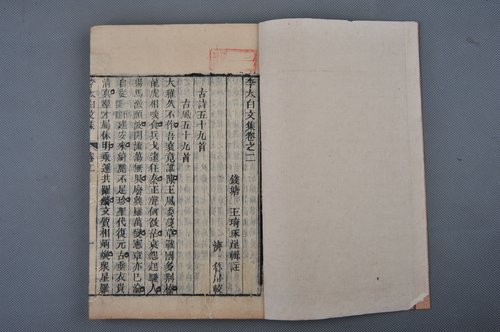 李太白文集卷之二
錢塘 王琦琢崖輯註
濟 川較
古詩五十九首
古風五十九首
大雅久不作吾衰竟誰陳王風委蔓草戰國多荆榛
龍虎相啖食兵戈逮狂秦正聲何微茫哀怨起騷人
揚馬激頹波開流蕩無垠廢興雖萬變憲章亦已淪
自從建安來綺麗不足珍聖代復元古垂衣貴
清真羣才屬休明乘運共躍鱗文質相炳煥衆星羅
李太白文集 卷二